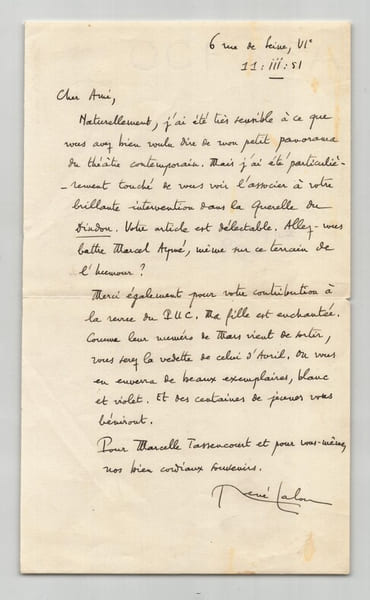 6 rue de Seine, VIe
11 : III : 51
Cher Ami,
Naturellement, j'ai été très sensible à ce que
vous avez bien voulu dire de mon petit panorama
du théâtre contemporain. Mais j'ai été particuliè-
-rement touché de vous voir l'associer à votre
brillante intervention dans la Querelle du
Dindon. Votre article est délectable. Allez-vous
battre Marcel Aymé, même sur ce terrain de
l'humour ?
Merci également pour votre contribution à
la revue du P.U.C. Ma fille est enchantée.
Comme leur numéro de Mars vient de sortir,
vous serez la vedette de celui d'Avril. On vous
en enverra de beaux exemplaires, blanc
et violet. Et des centaines de jeunes vous
béniront.
Pour Marcelle Tassencourt et pour vous-même,
nos bien cordiaux souvenirs.
René Lalou